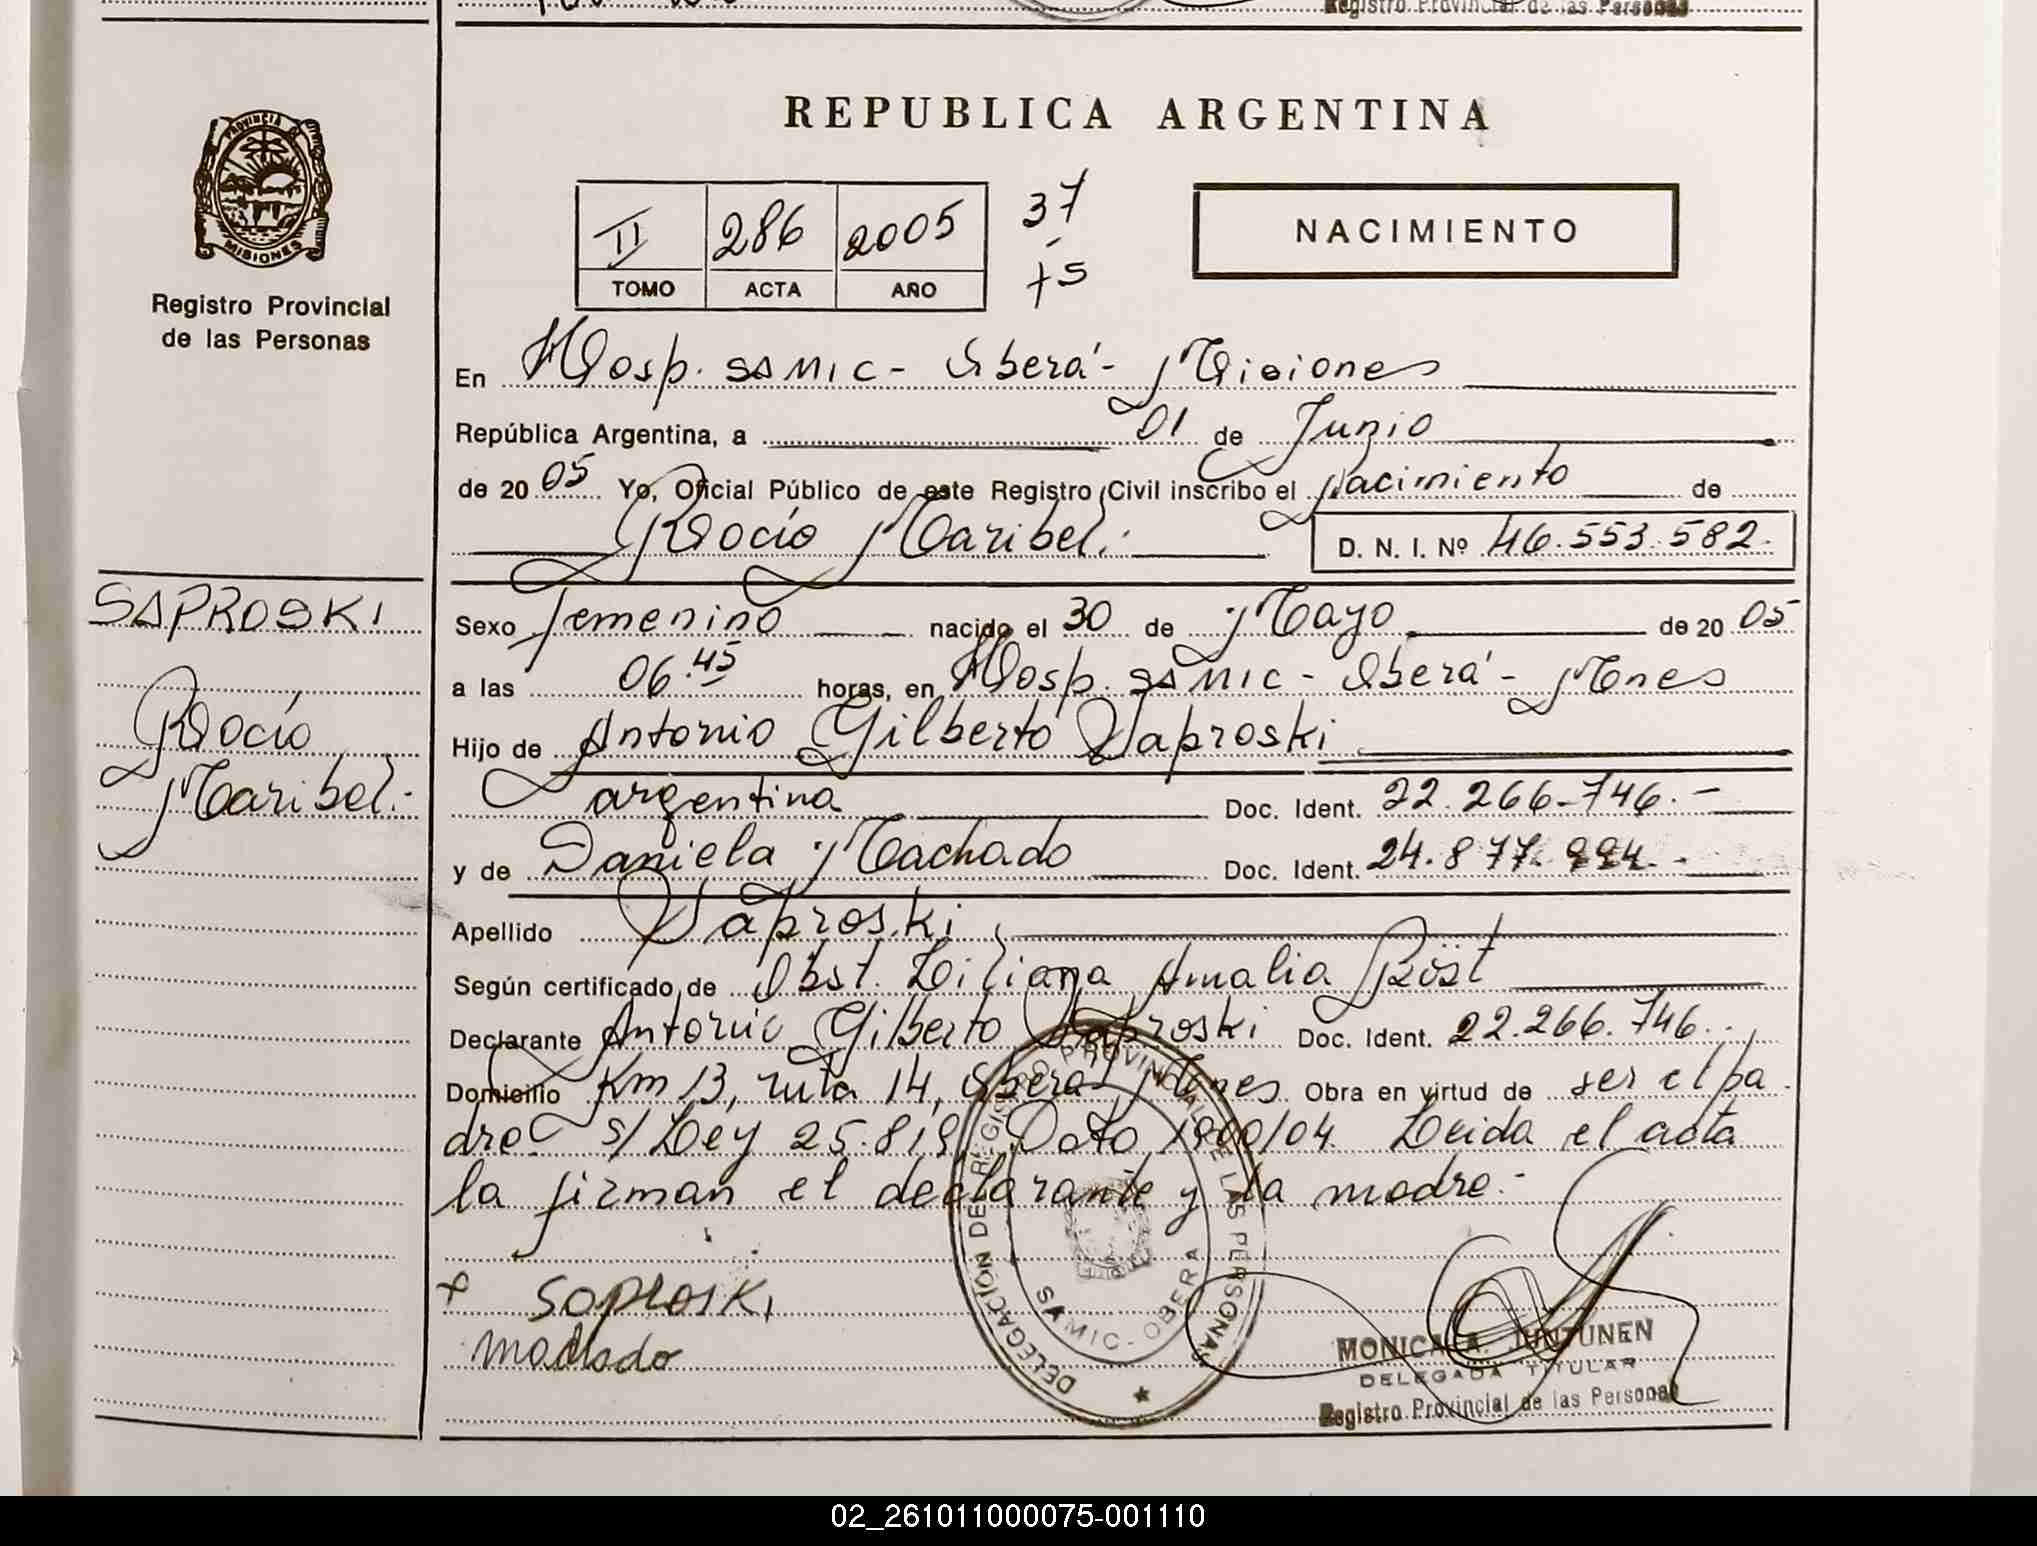 Registro Provincial de las Personas
REPUBLICA ARGENTINA
PROVINCIA DE
MISIONES
Registro Provincial
de las Personas
II 286 2005
TOMO ACTA AÑO
37
75
NACIMIENTO
En Hosp. SAMIC - Oberá - Misiones
República Argentina, a 01 de Junio
de 2005 Yo, Oficial Público de este Registro Civil inscribo el nacimiento de
Rocío Maribel.
D. N. I. Nº 46.553.582.
SAPROSKI
Rocío
Maribel.-
Sexo femenino nacido el 30 de Mayo de 2005
a las 06.45 horas, en Hosp. SAMIC - Oberá - Mnes
Hijo de Antonio Gilberto Saproski
argentina Doc. Ident. 22.266.746.-
y de Daniela Machado Doc. Ident. 24.877.994.-
Apellido Saproski
Según certificado de Obst. Liliana Amalia Röst
Declarante Antonio Gilberto Saproski Doc. Ident. 22.266.746.
Domicilio Km 13, ruta 14, Oberá Mnes Obra en virtud de ser el pa
dre s/ Ley 25.819, Dcto 1900/04. Leida el acta
la firman el declarante y la madre.-
DELEGACIÓN DE REGISTRO PROVINCIAL DE LAS PERSONAS
SAMIC - OBERA
+ Saproski
Machado
MONICA A. JUNTUNEN
DELEGADA TITULAR
Registro Provincial de las Personas
02_261011000075-001110